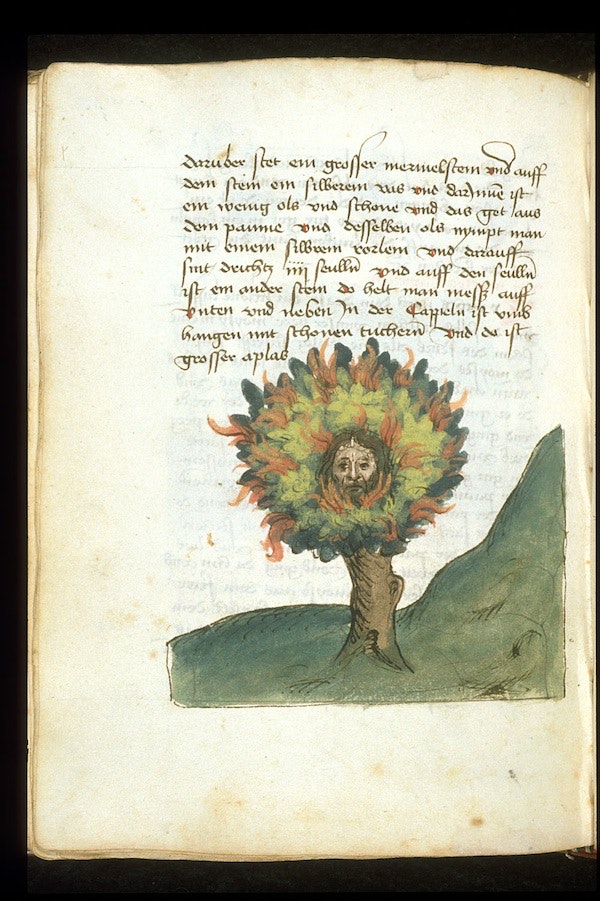 daruber stet ein grosser mermelstein vnd auff
dem stein ein silberein vas vnd darJnnē ist
ein wenig ols vnd schone vnd das get aus
dem paume vnd desselben ols nympt man
mit einem silbrein rorlein vnd darauff
sint drichtz iiii seulln̄ vnd auff den seulln̄
ist ein ander stein do helt man messz auff
vnten vnd neben Jn der Cappeln̄ ist vmb
hangen mit schonen tuchern̄ vnd do ist
grosser aplas